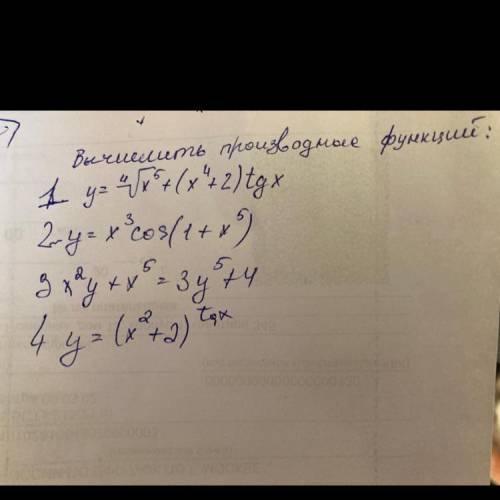 Вычислить производные функций:
1 y = ⁴√x⁵ + (x⁴+2)tgx
2 y = x³cos(1+x⁵)
3 x²y + x⁵ = 3y⁵+4
4 y = (x²+2)^tgx